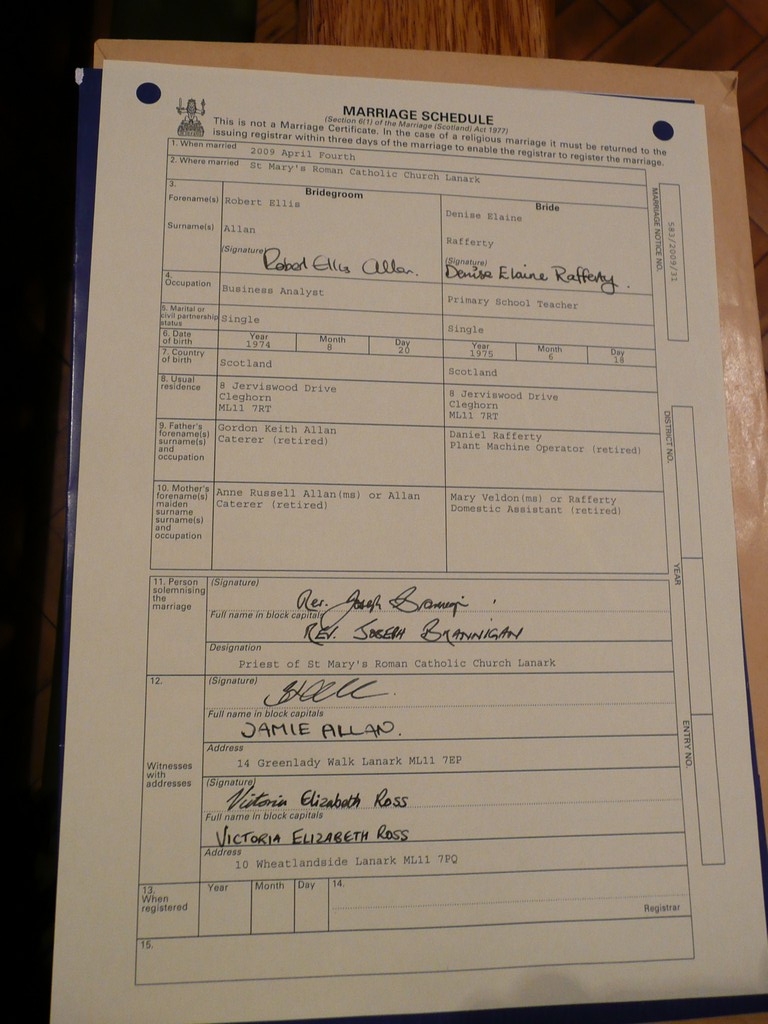 MARRIAGE SCHEDULE
(Section 6(1) of the Marriage (Scotland) Act 1977)
This is not a Marriage Certificate. In the case of a religious marriage it must be returned to the
issuing registrar within three days of the marriage to enable the registrar to register the marriage.
1. When married 2009 April Fourth
2. Where married St Mary's Roman Catholic Church Lanark
3. Bridegroom Bride
Forename(s) Robert Ellis Denise Elaine
Surname(s) Allan Rafferty
(Signature) Robert Ellis Allan. (Signature) Denise Elaine Rafferty.
4. Occupation Business Analyst Primary School Teacher
5. Marital or civil partnership status Single Single
6. Date of birth Year 1974 Month 8 Day 20 Year 1975 Month 6 Day 18
7. Country of birth Scotland Scotland
8. Usual residence 8 Jerviswood Drive 8 Jerviswood Drive
Cleghorn Cleghorn
ML11 7RT ML11 7RT
9. Father's forename(s) surname(s) and occupation Gordon Keith Allan Daniel Rafferty
Caterer (retired) Plant Machine Operator (retired)
10. Mother's forename(s) maiden surname surname(s) and occupation Anne Russell Allan(ms) or Allan Mary Veldon(ms) or Rafferty
Caterer (retired) Domestic Assistant (retired)
11. Person solemnising the marriage
(Signature) Rev. Joseph Brannigan
Full name in block capitals
REV. JOSEPH BRANNIGAN
Designation
Priest of St Mary's Roman Catholic Church Lanark
12. Witnesses with addresses
(Signature)
Full name in block capitals
JAMIE ALLAN.
Address
14 Greenlady Walk Lanark ML11 7EP
(Signature)
Victoria Elizabeth Ross
Full name in block capitals
VICTORIA ELIZABETH ROSS
Address
10 Wheatlandside Lanark ML11 7PQ
13. When registered Year Month Day 14.
Registrar
15.
MARRIAGE NOTICE NO. 583/2009/31
DISTRICT NO.
YEAR
ENTRY NO.